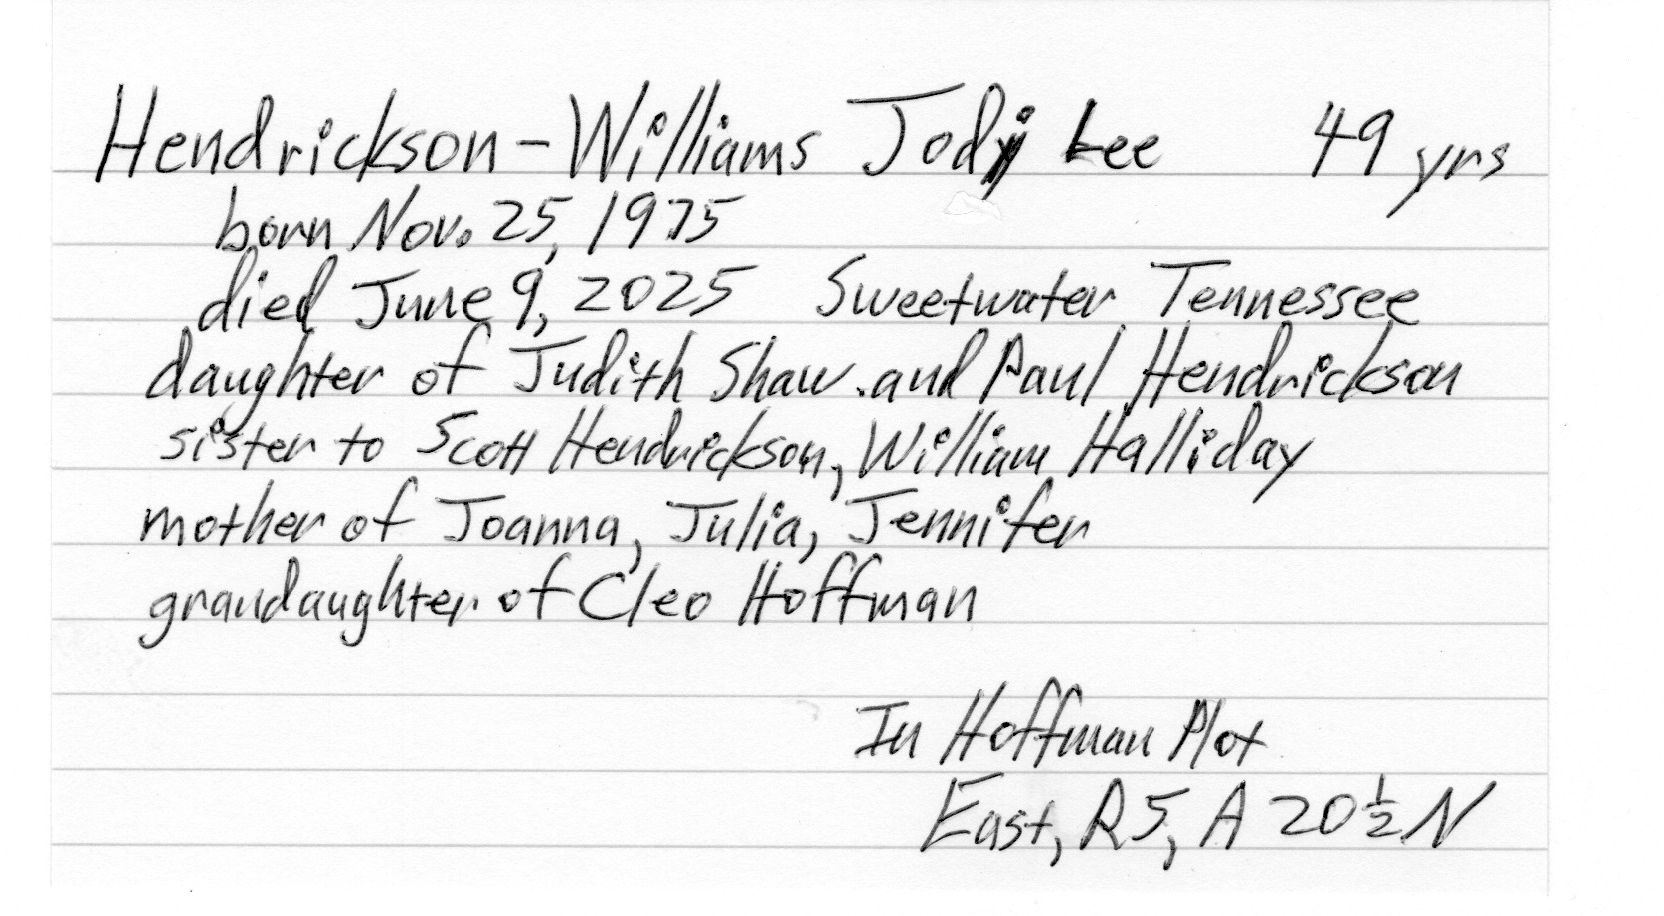 Hendrickson-Williams Jody Lee 49 yrs
born Nov. 25, 1975
died June 9, 2025 Sweetwater Tennessee
daughter of Judith Shaw and Paul Hendrickson
sister to Scott Hendrickson, William Halliday
mother of Joanna, Julia, Jennifer
grandaughter of Cleo Hoffman
In Hoffman Plot
East, R5, A 20 ½ N